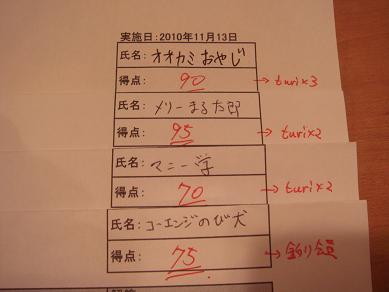 実施日:2010年11月13日
氏名: オオカミおやじ
得点: 90 → turi×3
氏名: メリーまる太郎
得点: 95 → turi×2
氏名: マニー学
得点: 70 → turi×2
氏名: コーエンジのび犬
得点: 75 →